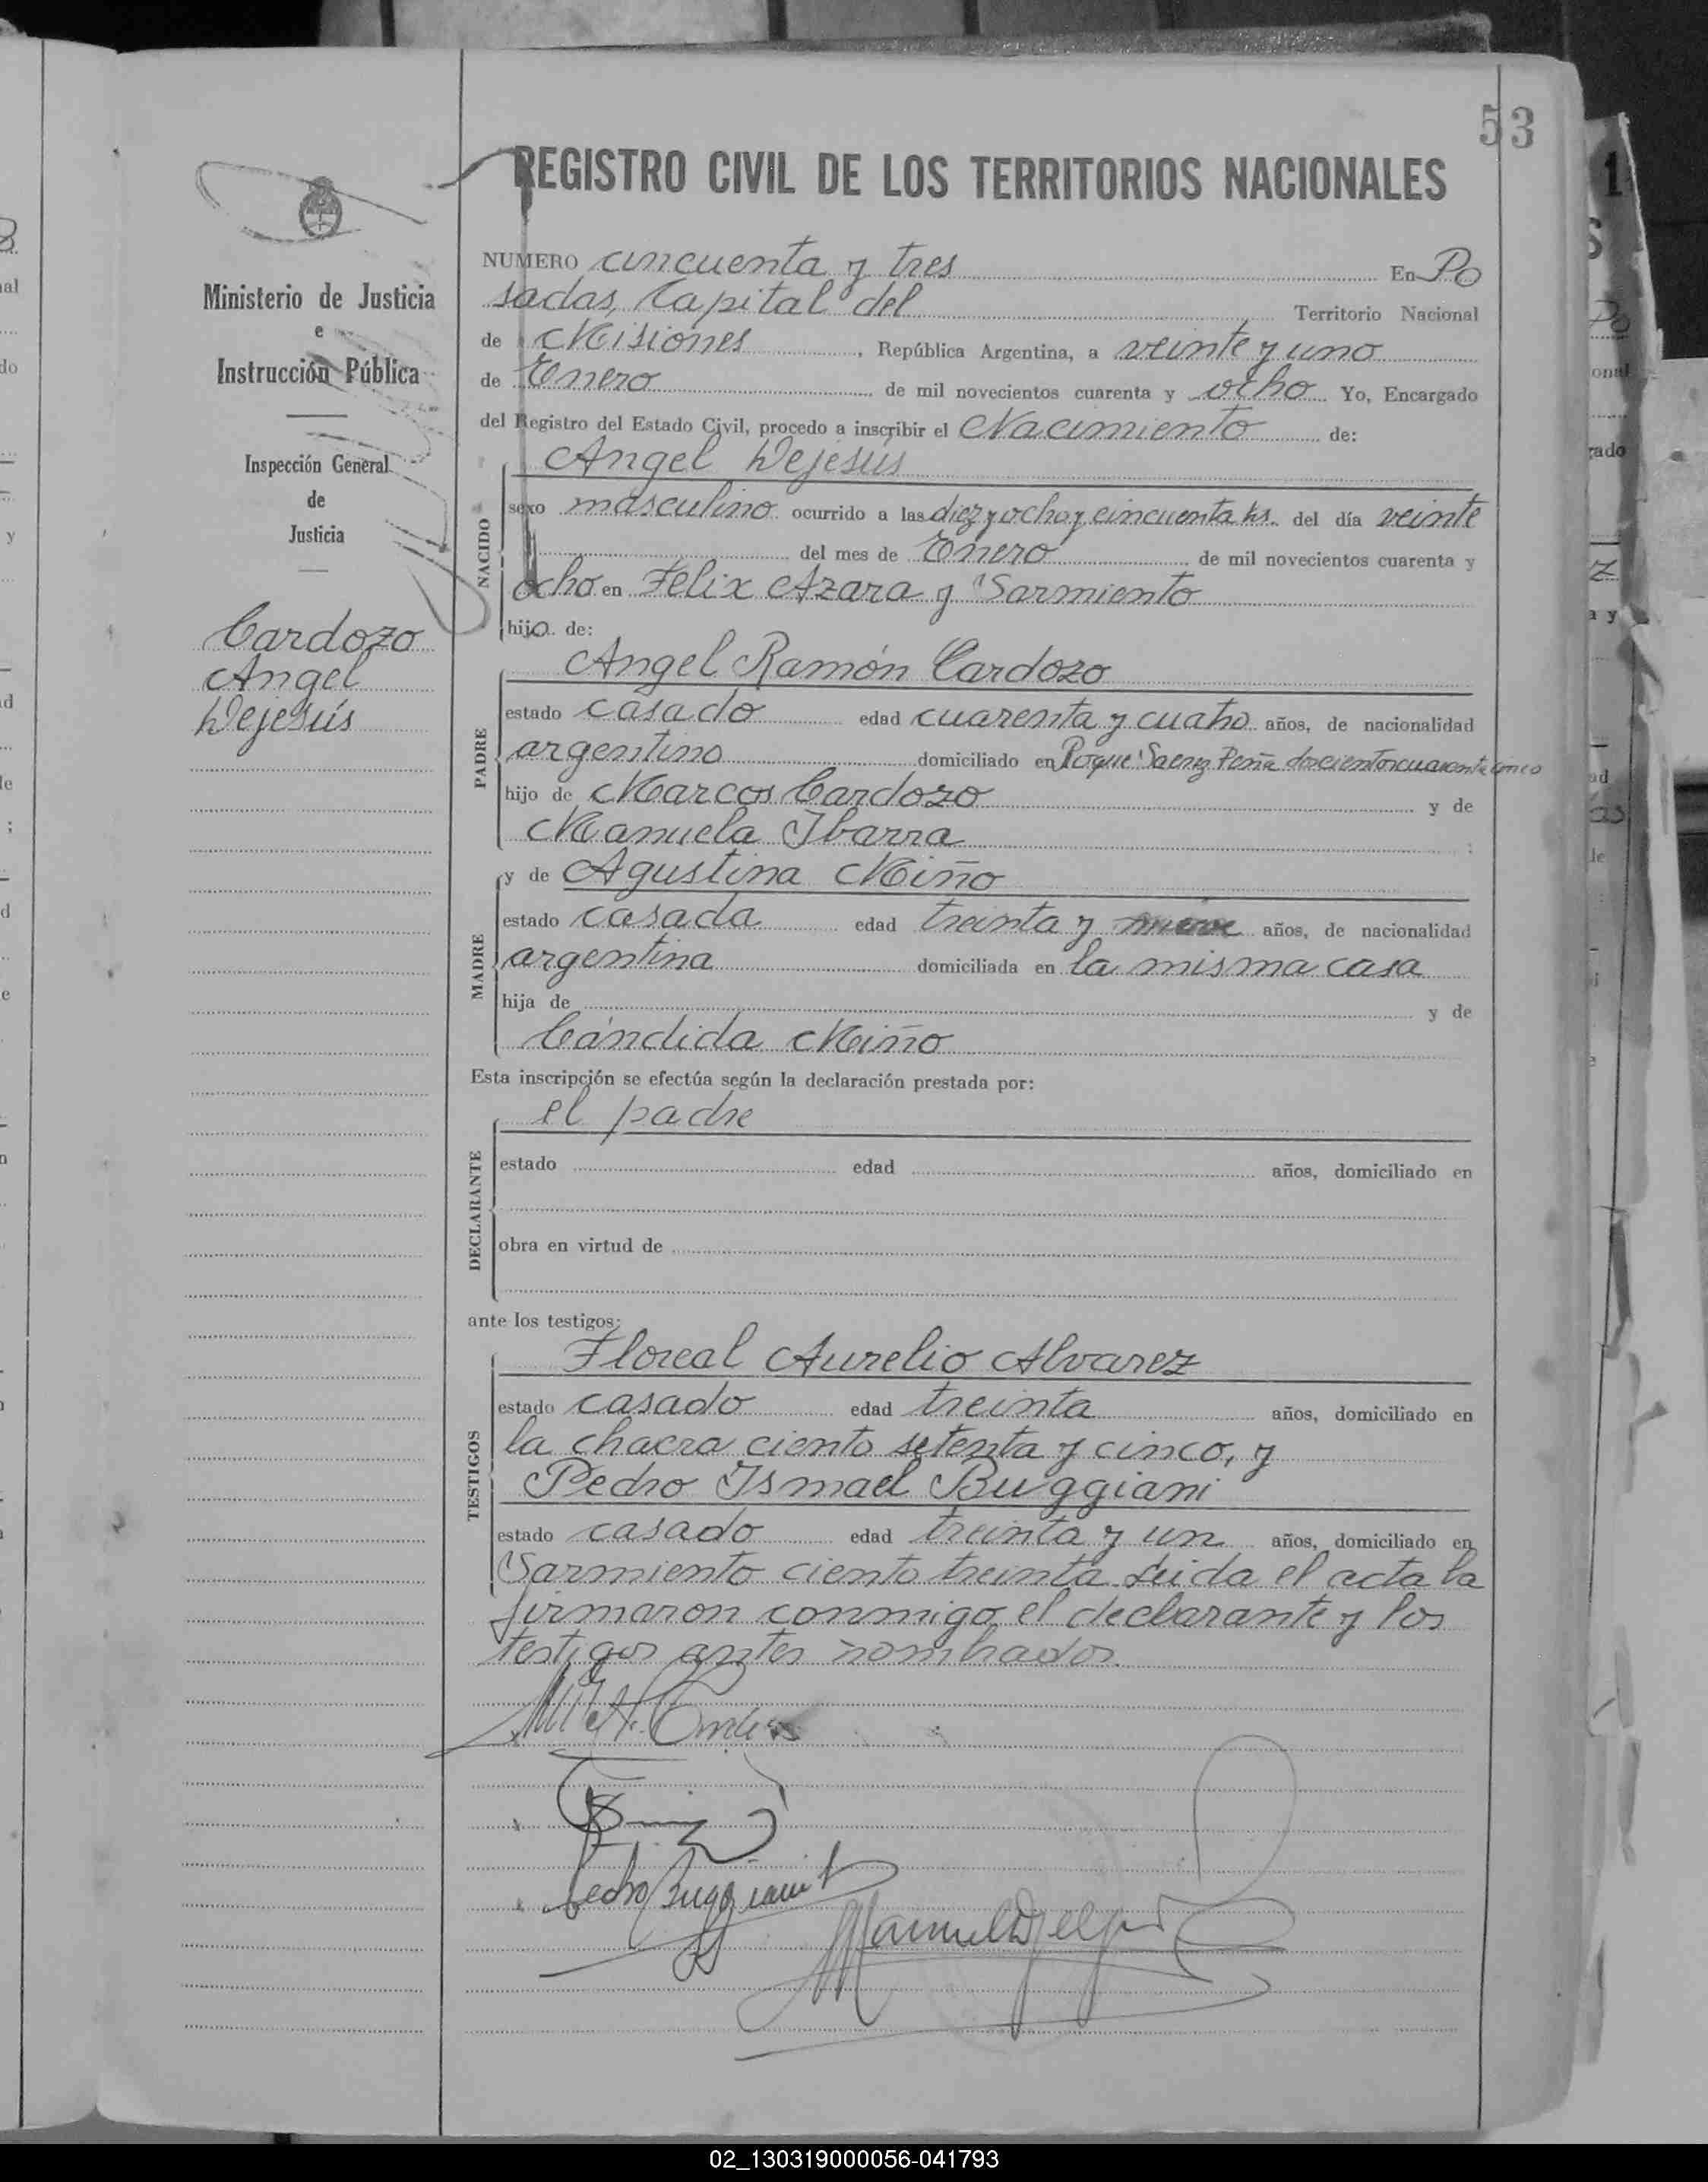 53
REGISTRO CIVIL DE LOS TERRITORIOS NACIONALES
Ministerio de Justicia
e
Instrucción Pública
Inspección General
de
Justicia
Cardozo
Angel
Dejesús
NUMERO cincuenta y tres En Po
sadas, Capital del Territorio Nacional
de Misiones, República Argentina, a veinte y uno
de Enero de mil novecientos cuarenta y ocho Yo, Encargado
del Registro del Estado Civil, procedo a inscribir el Nacimiento de:
Angel Dejesús
NACIDO
sexo masculino ocurrido a las diez y ocho y cincuenta hs. del día veinte
del mes de Enero de mil novecientos cuarenta y
ocho en Felix Azara y Sarmiento
hijo de:
Angel Ramón Cardozo
PADRE
estado casado edad cuarenta y cuatro años, de nacionalidad
argentino domiciliado en Roque Saenz Peña doscientos cuarenta cinco
hijo de Marcos Cardozo y de
Manuela Ibarra ;
y de Agustina Miño
MADRE
estado casada edad treinta y nueve años, de nacionalidad
argentina domiciliada en la misma casa
hija de y de
Cándida Miño
Esta inscripción se efectúa según la declaración prestada por:
el padre
DECLARANTE
estado edad años, domiciliado en
obra en virtud de
ante los testigos:
Floreal Aurelio Alvarez
TESTIGOS
estado casado edad treinta años, domiciliado en
la chacra ciento setenta y cinco, y
Pedro Ismael Buggiani
estado casado edad treinta y un años, domiciliado en
Sarmiento ciento treinta. Leida el acta la
firmaron conmigo el declarante y los
testigos antes nombrados.
Pedro Buggiani
02_130319000056-041793